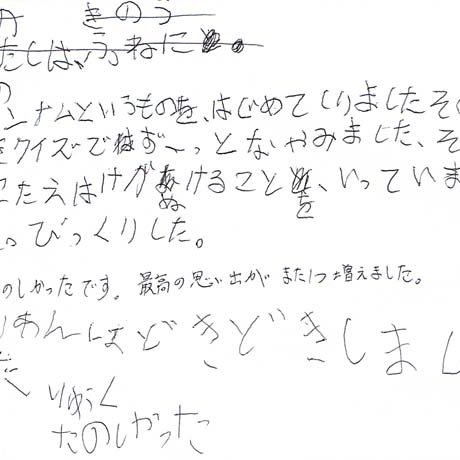 きのう
たしは、うねに
ンナムというものを、はじめてしりましたそ
クイズでずーっとなやみました、そ
こたえはけがぬけることを、いっていま
っびっくりした。
のしかったです。最高の思い出がまた1つ増えました。
りあんはどきどきしまし
りゅうく
たのしかった